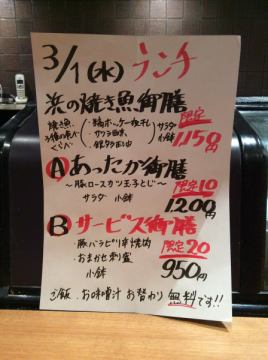 3/1(水) ランチ
浜の焼き魚御膳
焼き魚
3種の食べくらべ
・縞ホッケ一夜干し
サラダ
小鉢
限定
1150円
Ⓐ あったか御膳
～豚ロースカツ玉子とじ～
サラダ 小鉢
限定10
1200円
Ⓑ サービス御膳
・豚バラピリ辛焼肉
・おまかせ刺盛
小鉢
限定20
950円
ご飯、お味噌汁 お替わり 無料です!!